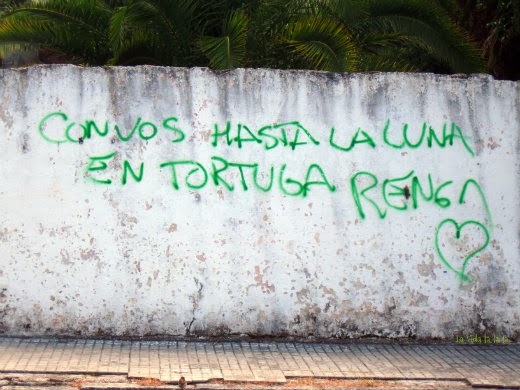 CON VOS HASTA LA LUNA
EN TORTUGA RENGA